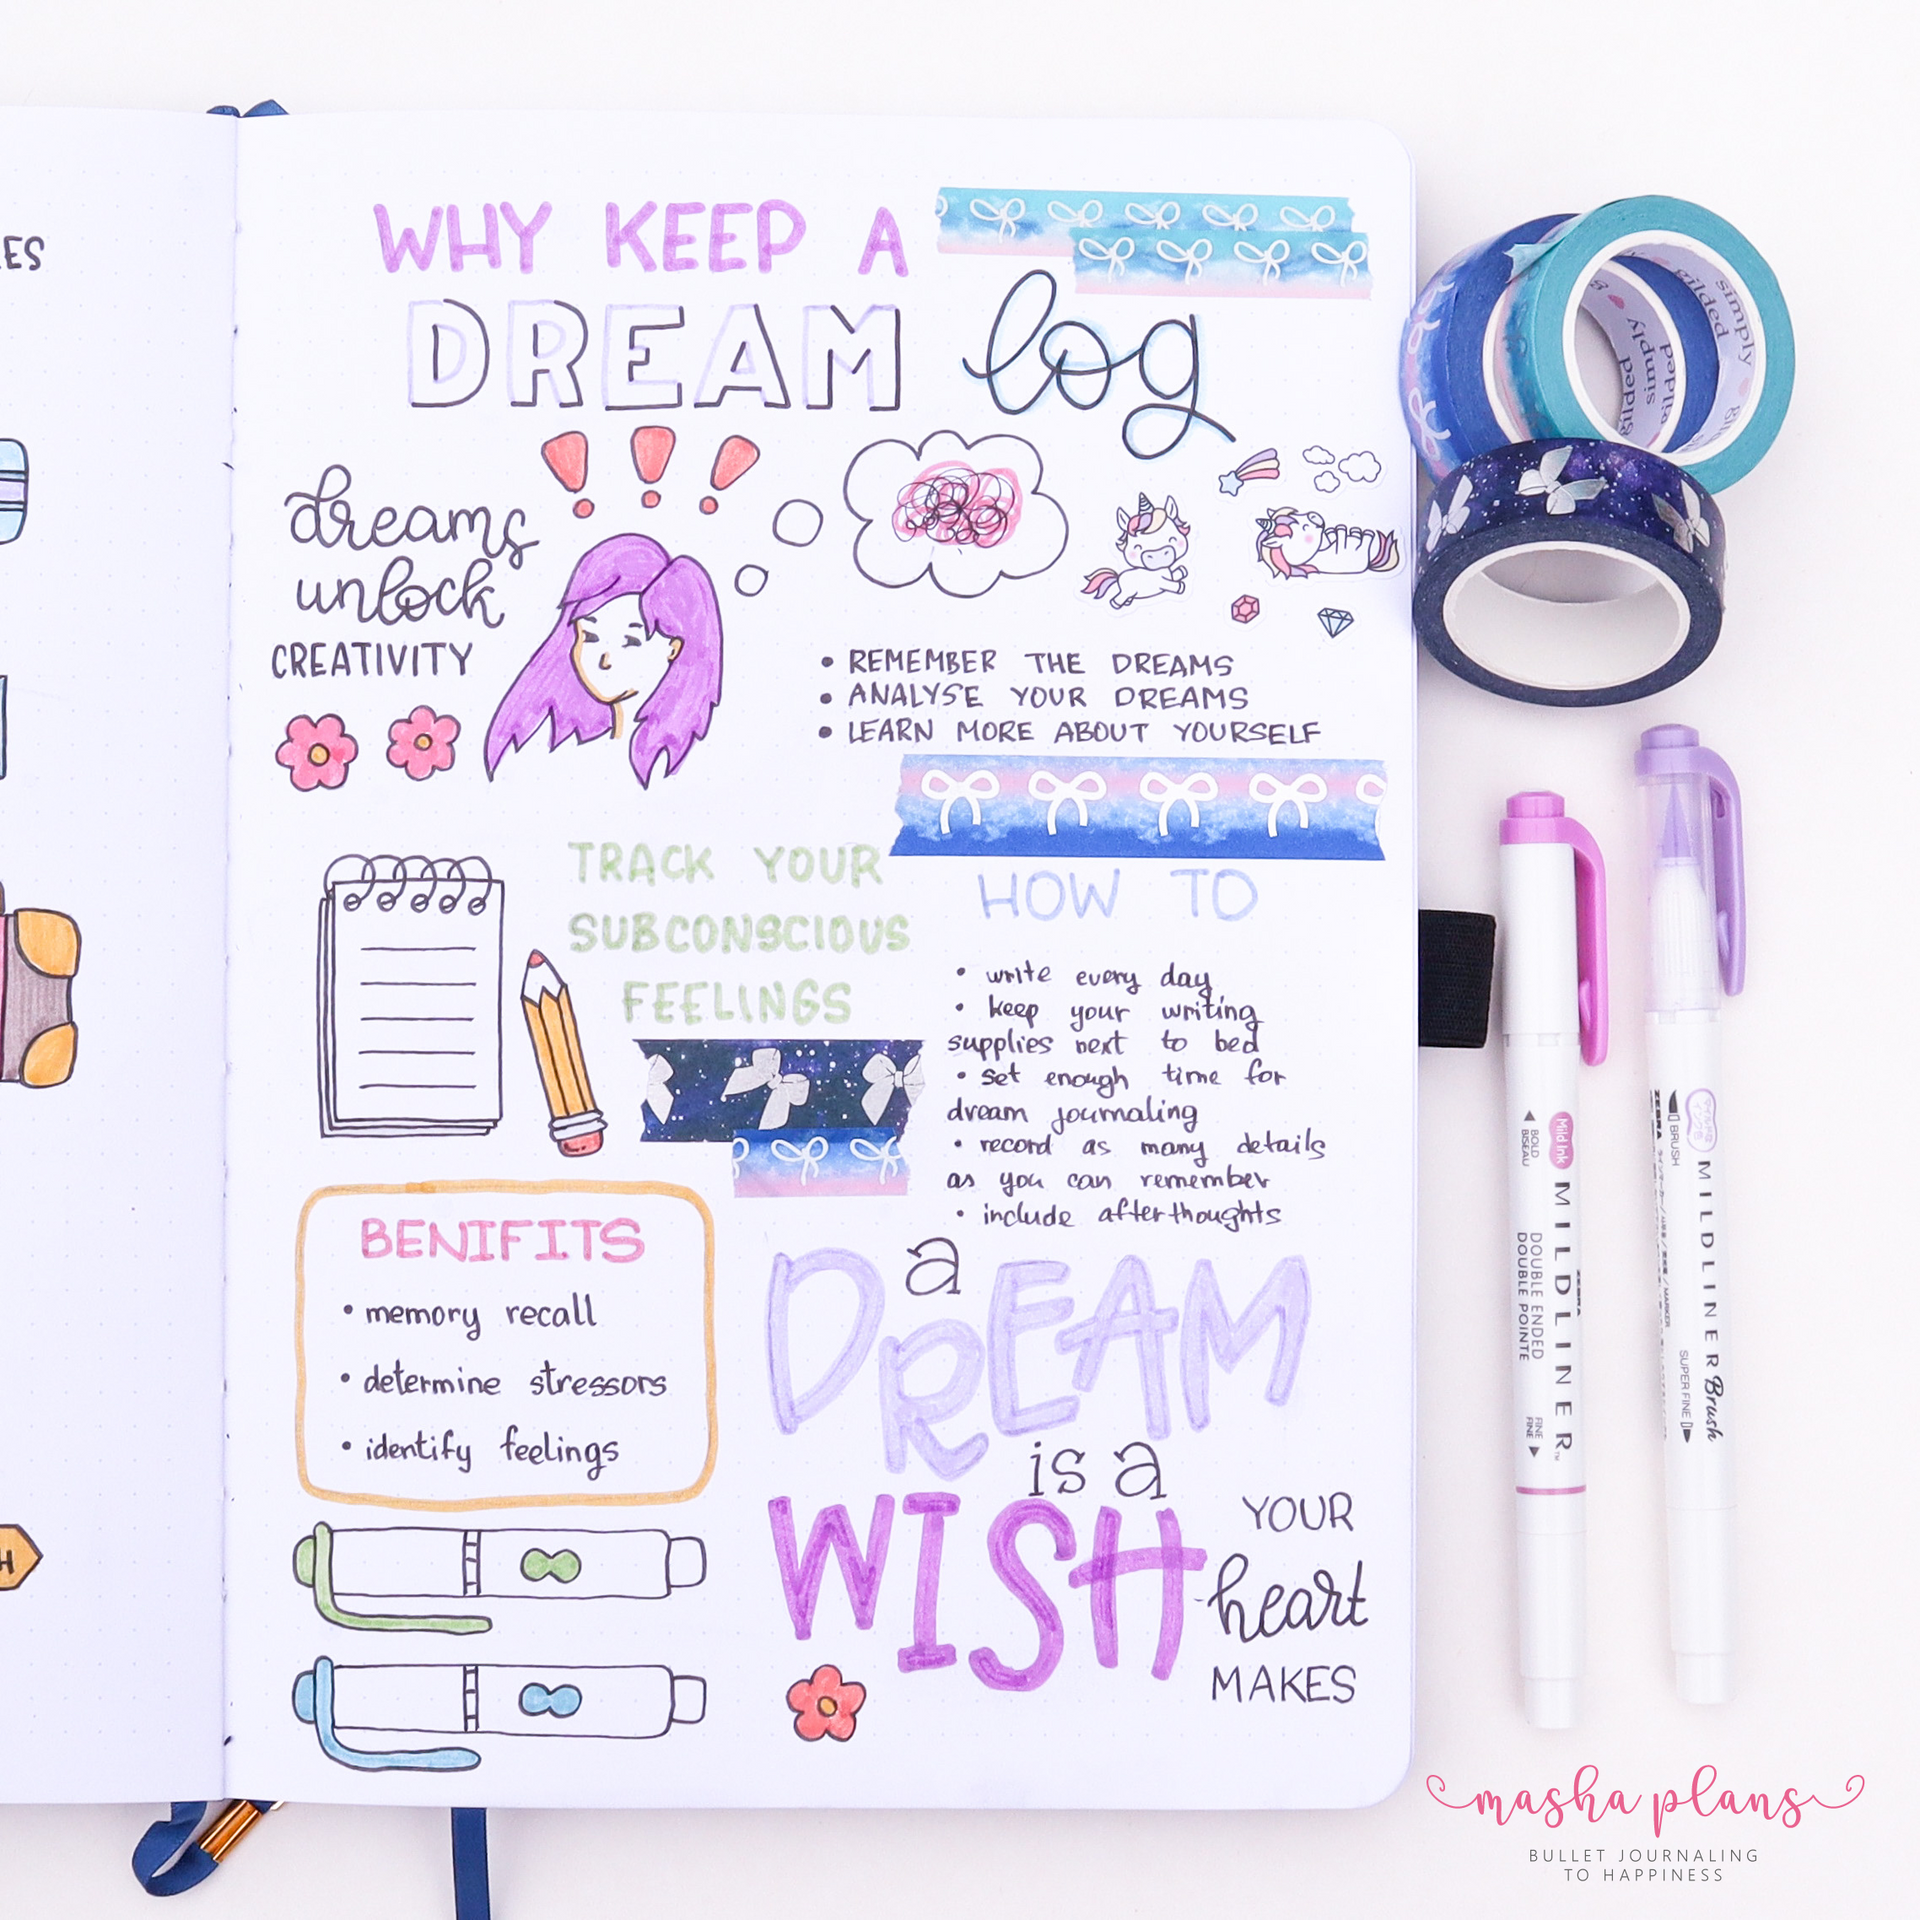 ES
WHY KEEP A
DREAM log
dreams
unlock
CREATIVITY
• REMEMBER THE DREAMS
• ANALYSE YOUR DREAMS
• LEARN MORE ABOUT YOURSELF
TRACK YOUR
SUBCONSCIOUS
FEELINGS
HOW TO
• write every day
• keep your writing
supplies next to bed
• set enough time for
dream journaling
• record as many details
as you can remember
• include afterthoughts
BENIFITS
• memory recall
• determine stressors
• identify feelings
a
DREAM
is a
WISH
YOUR
heart
MAKES
H
simply
gilded
simply
gilded
Mild Ink
BOLD
BISEAU
ZEBRA
MILDLINER
DOUBLE ENDED
DOUBLE POINTE
FINE
FINE
ZEBRA
BRUSH
MILDLINER Brush
SUPER FINE
masha plans
BULLET JOURNALING
TO HAPPINESS